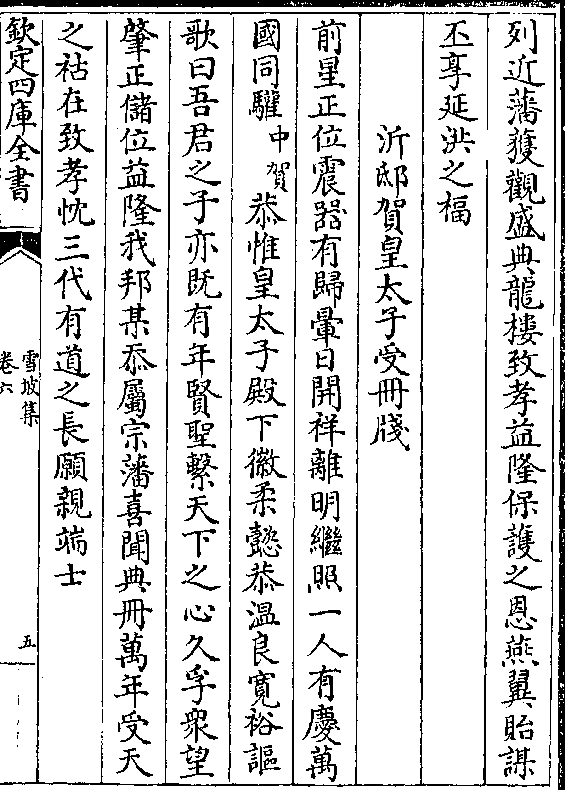 列近藩獲觀盛典龍樓致孝益隆保護之恩燕翼貽謀
丕享延洪之福
沂邸賀皇太子受冊牋
前星正位震器有歸暈日開祥離明繼照一人有慶萬
國同驩中賀恭惟皇太子殿下徽柔懿恭温良寬裕謳
歌曰吾君之子亦既有年賢聖繫天下之心久孚衆望
肇正儲位益隆我邦某忝屬宗藩喜聞典冊萬年受天
之祜在致孝忱三代有道之長願親端士
欽定四庫全書
雪坡集
卷六
五